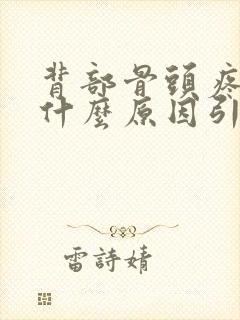 背部骨頭疼
什麼原因引
雷詩婧